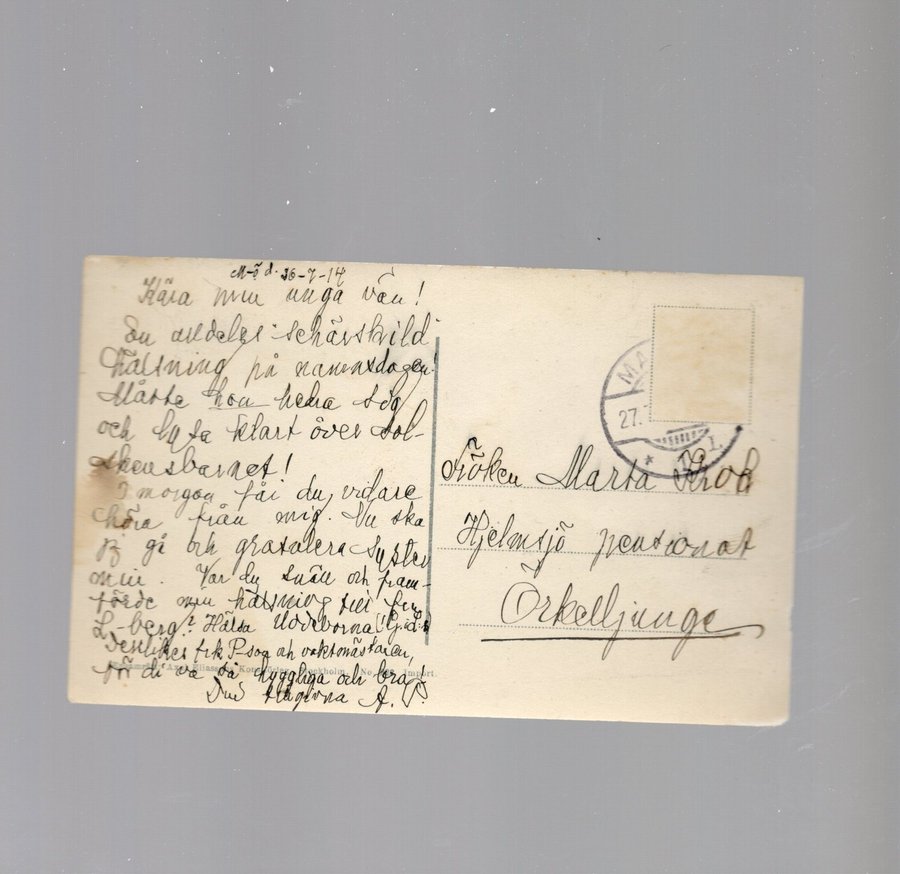 M-ö d. 26-7-14
Kära min unga vän!
En alldeles särskild
hälsning på namnsdagen!
Måtte hon hedra sig
och lysa klart över sol-
skensbarnet!
I morgon får du vidare
höra från mig. Nu ska
jag gå och gratulera syster
min. Var du snäll och fram-
förde min hälsning till
L-berg? Hälsa
Desslikes frk P-son och vaktmästaren,
för di va så hyggliga och bra!
Din A. P.
Axel Eliassons Konstförlag, Stockholm. No. Import.
MA
27.
1.
Fröken Marta Krok
Hjelmsjö pensionat
Örkelljunga